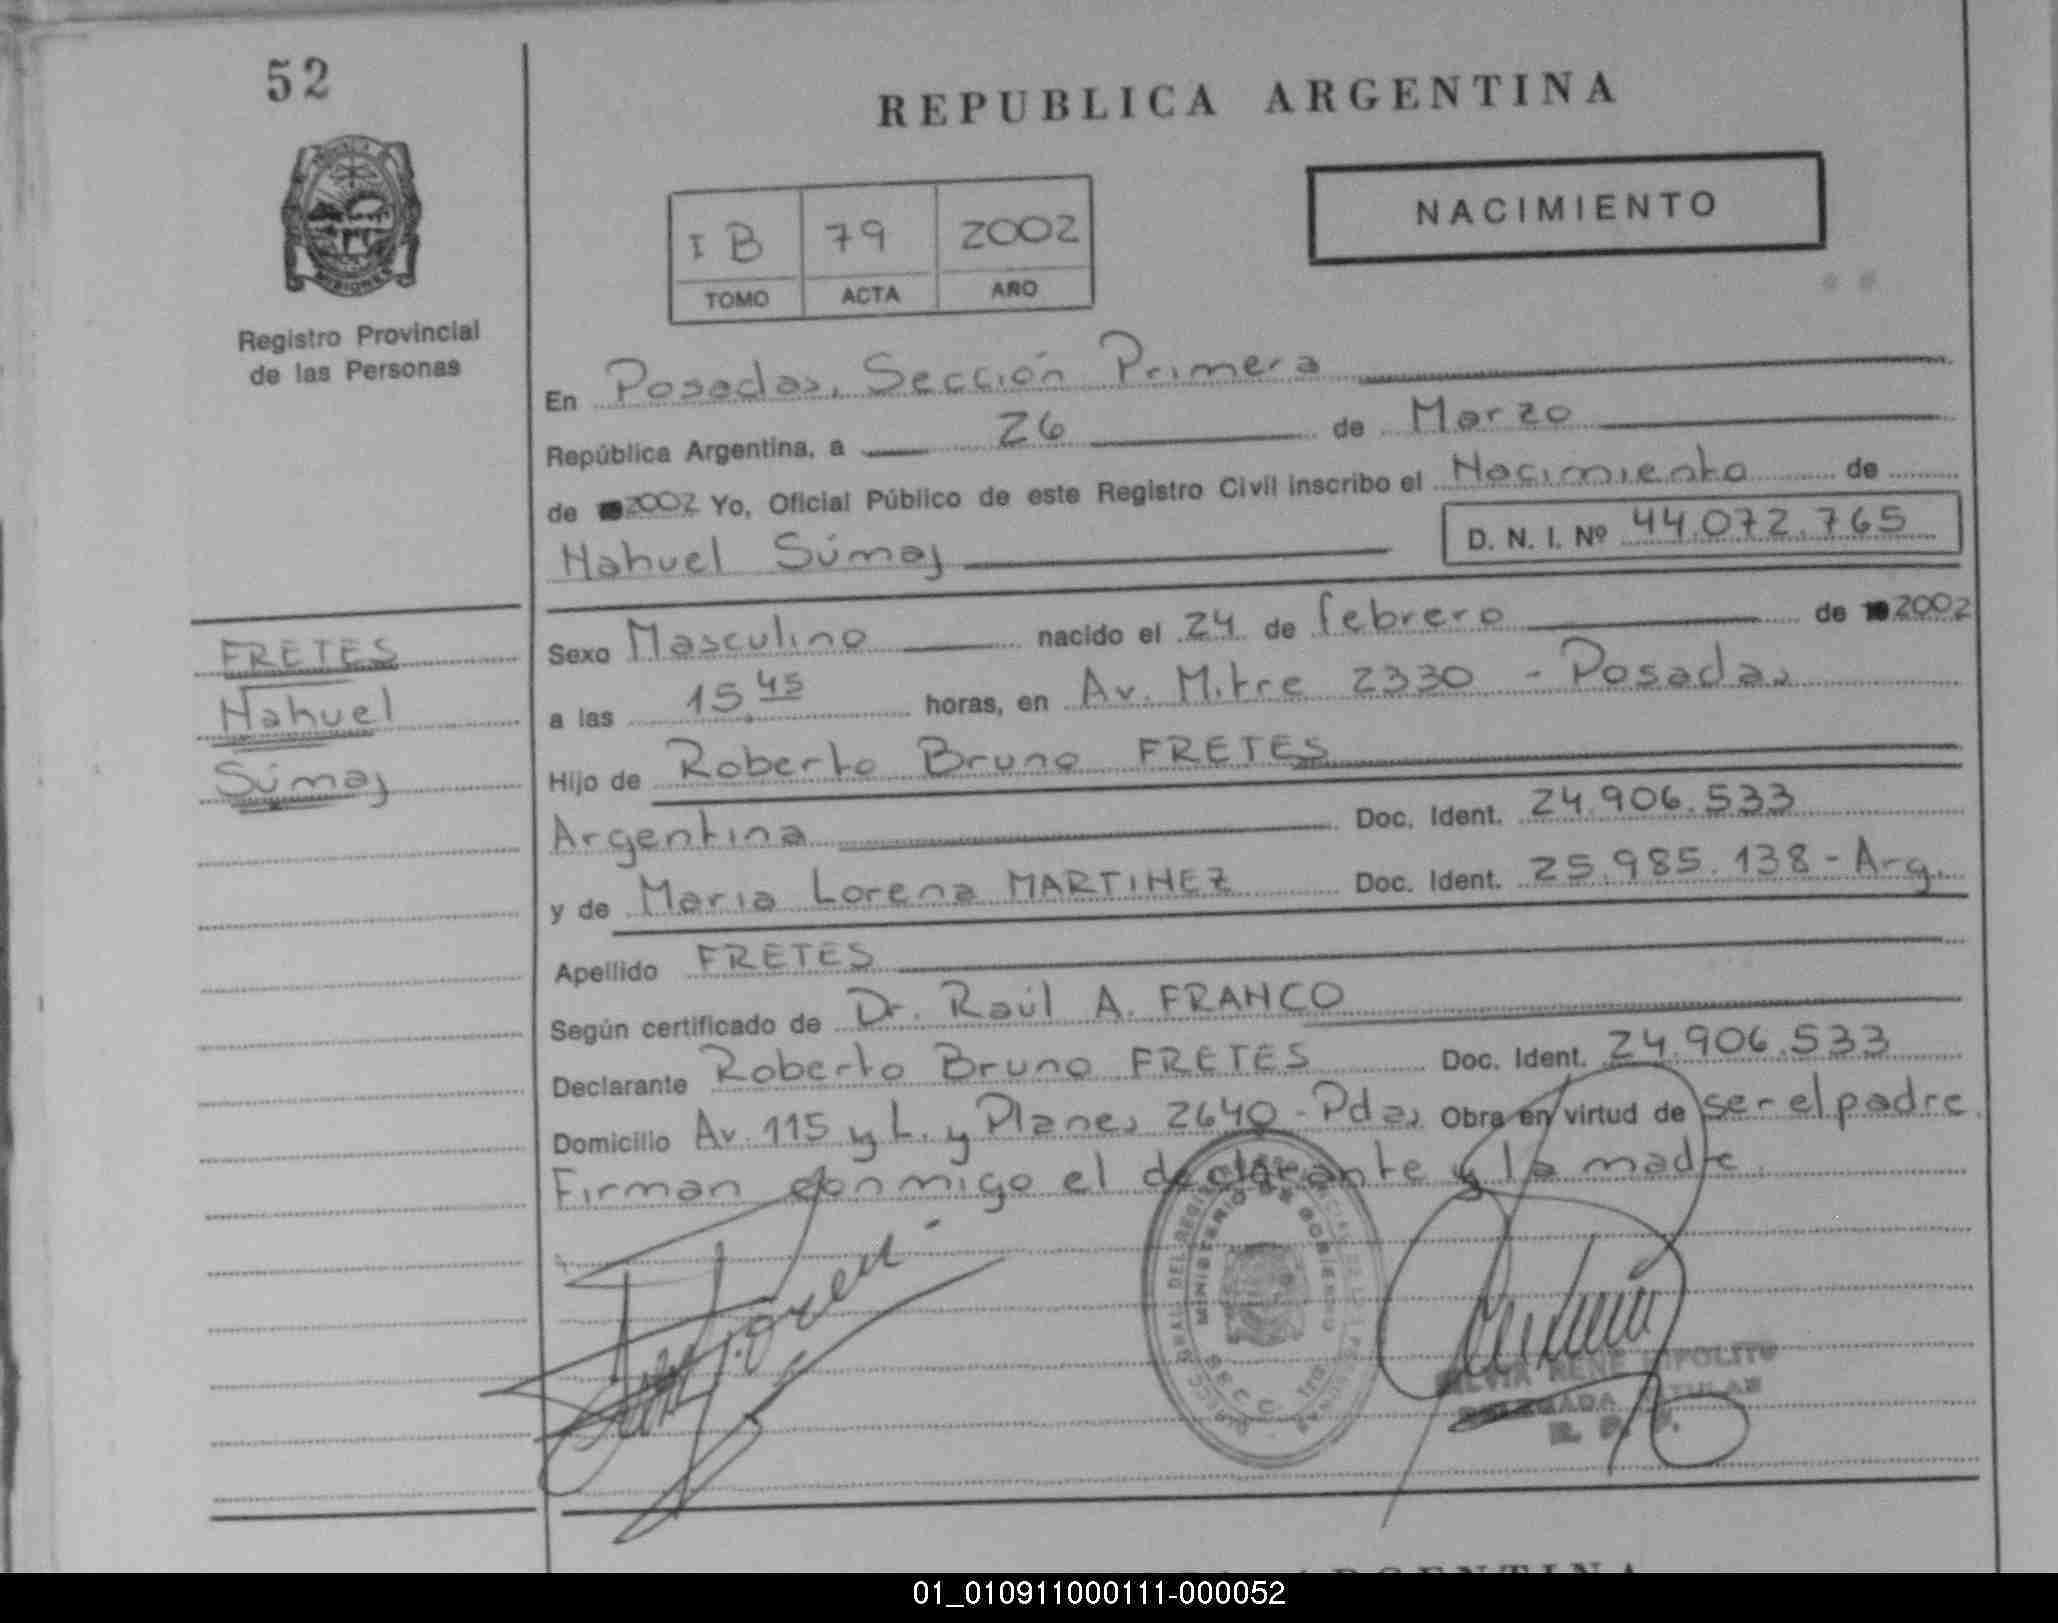 52
REPUBLICA ARGENTINA
NACIMIENTO
I B 79 2002
TOMO ACTA AÑO
Registro Provincial
de las Personas
En Posadas, Sección Primera
República Argentina, a 26 de Marzo
de 2002 Yo, Oficial Público de este Registro Civil inscribo el Nacimiento de
Nahuel Súmaj D. N. I. Nº 44.072.765
FRETES
Nahuel
Súmaj
Sexo Masculino nacido el 24 de febrero de 2002
a las 15.45 horas, en Av. Mitre 2330 - Posadas
Hijo de Roberto Bruno FRETES
Argentina Doc. Ident. 24.906.533
y de Maria Lorena MARTINEZ Doc. Ident. 25.985.138 - Arg.
Apellido FRETES
Según certificado de Dr. Raúl A. FRANCO
Declarante Roberto Bruno FRETES Doc. Ident. 24.906.533
Domicilio Av. 115 y L. y Planes 2640 - Pdas Obra en virtud de ser el padre.
Firman conmigo el declarante y la madre.
MINISTERIO DE GOBIERNO
SILVIA RENE HIPOLITO
DELEGADA TITULAR
R. P. P.
ARGENTINA
01_010911000111-000052